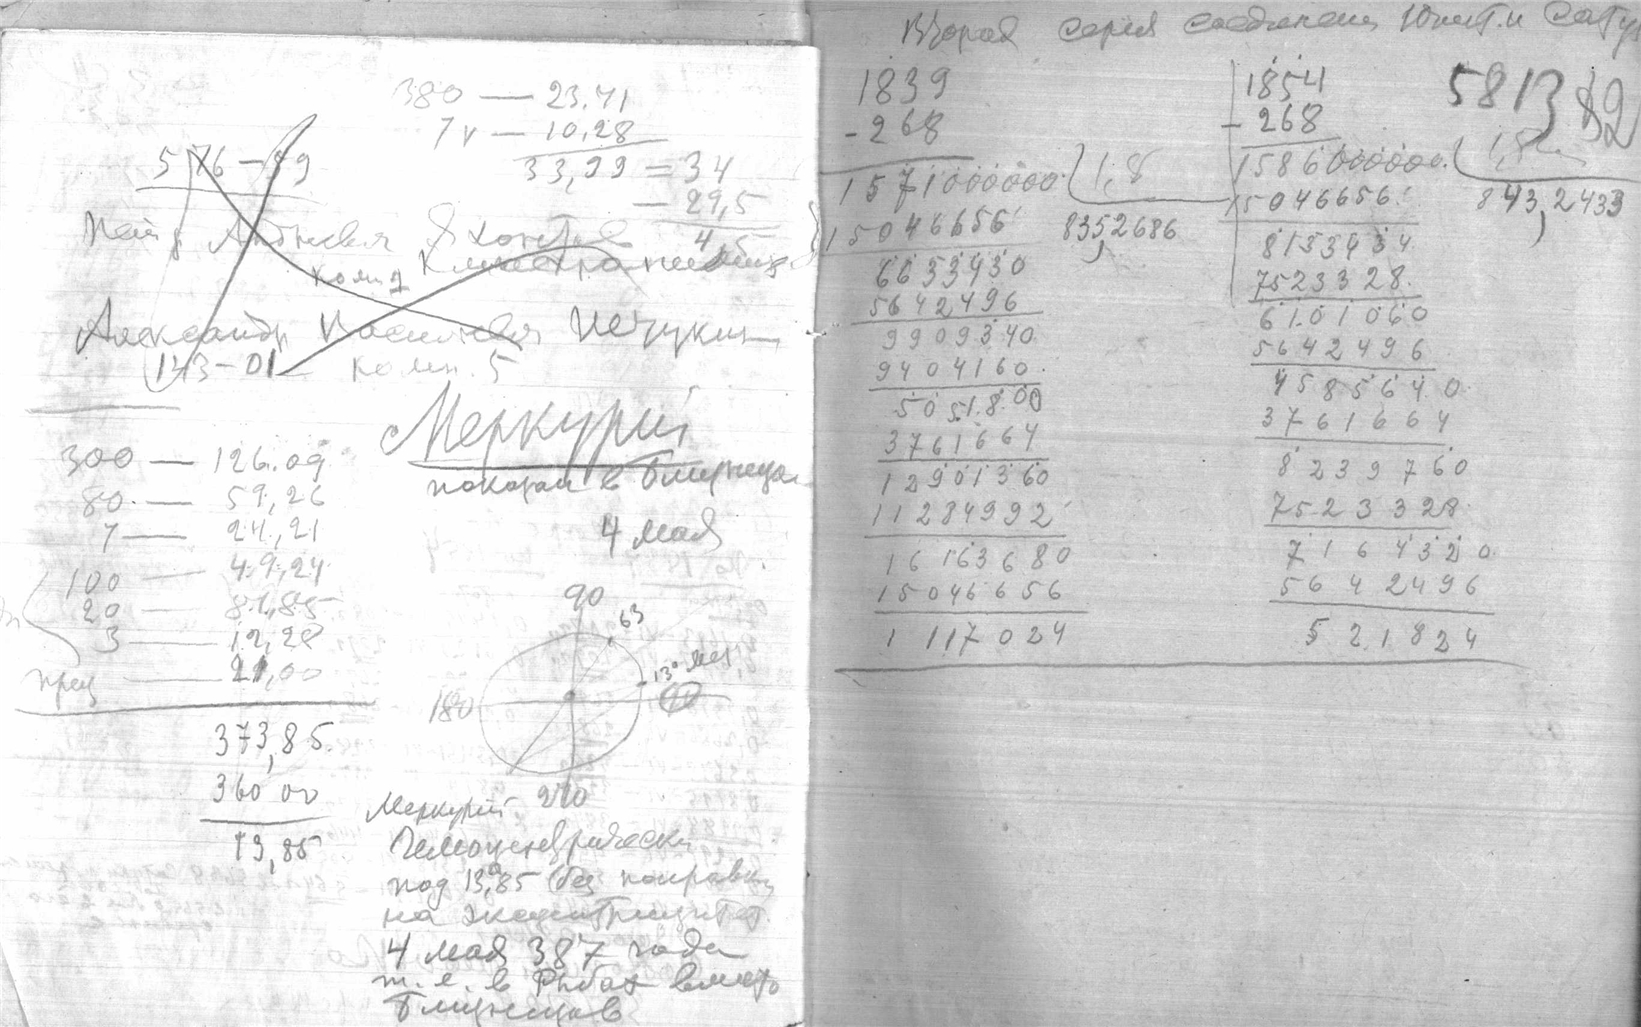 380 — 23,71
7v — 10,28
33,99 = 34
— 29,5
4,5
576 – 89
комн
Александр Васильевич
143–01 комн. 5
Меркурий
показан в Близнецах
4 мая
300 — 126.09
80 — 59,26
7 — 24,21
100 — 49,24
20 — 81,85
3 — 12,28
прец — 21,00
373,85
360 00
13,85
90
63
13°
180
270
Меркурий
Гелиоцентрически
под 13,85 (без поправки
на эксцентрицитет)
4 мая 387 года
т. е. в Рыбах вместо
Близнецов
Вторая серия соединений Юпит. и Сату
1839
- 268
1571000000 1,8
15046656 835,2686
6633430
5642496
9909340
9404160
5051800
3761664
12901360
11284992
16163680
15046656
1117024
1854
- 268
1586000000
15046656 843,2433
8133434
7523328
6101060
5642496
4585640
3761664
8239760
7523328
7164320
5642496
521824
5813 82